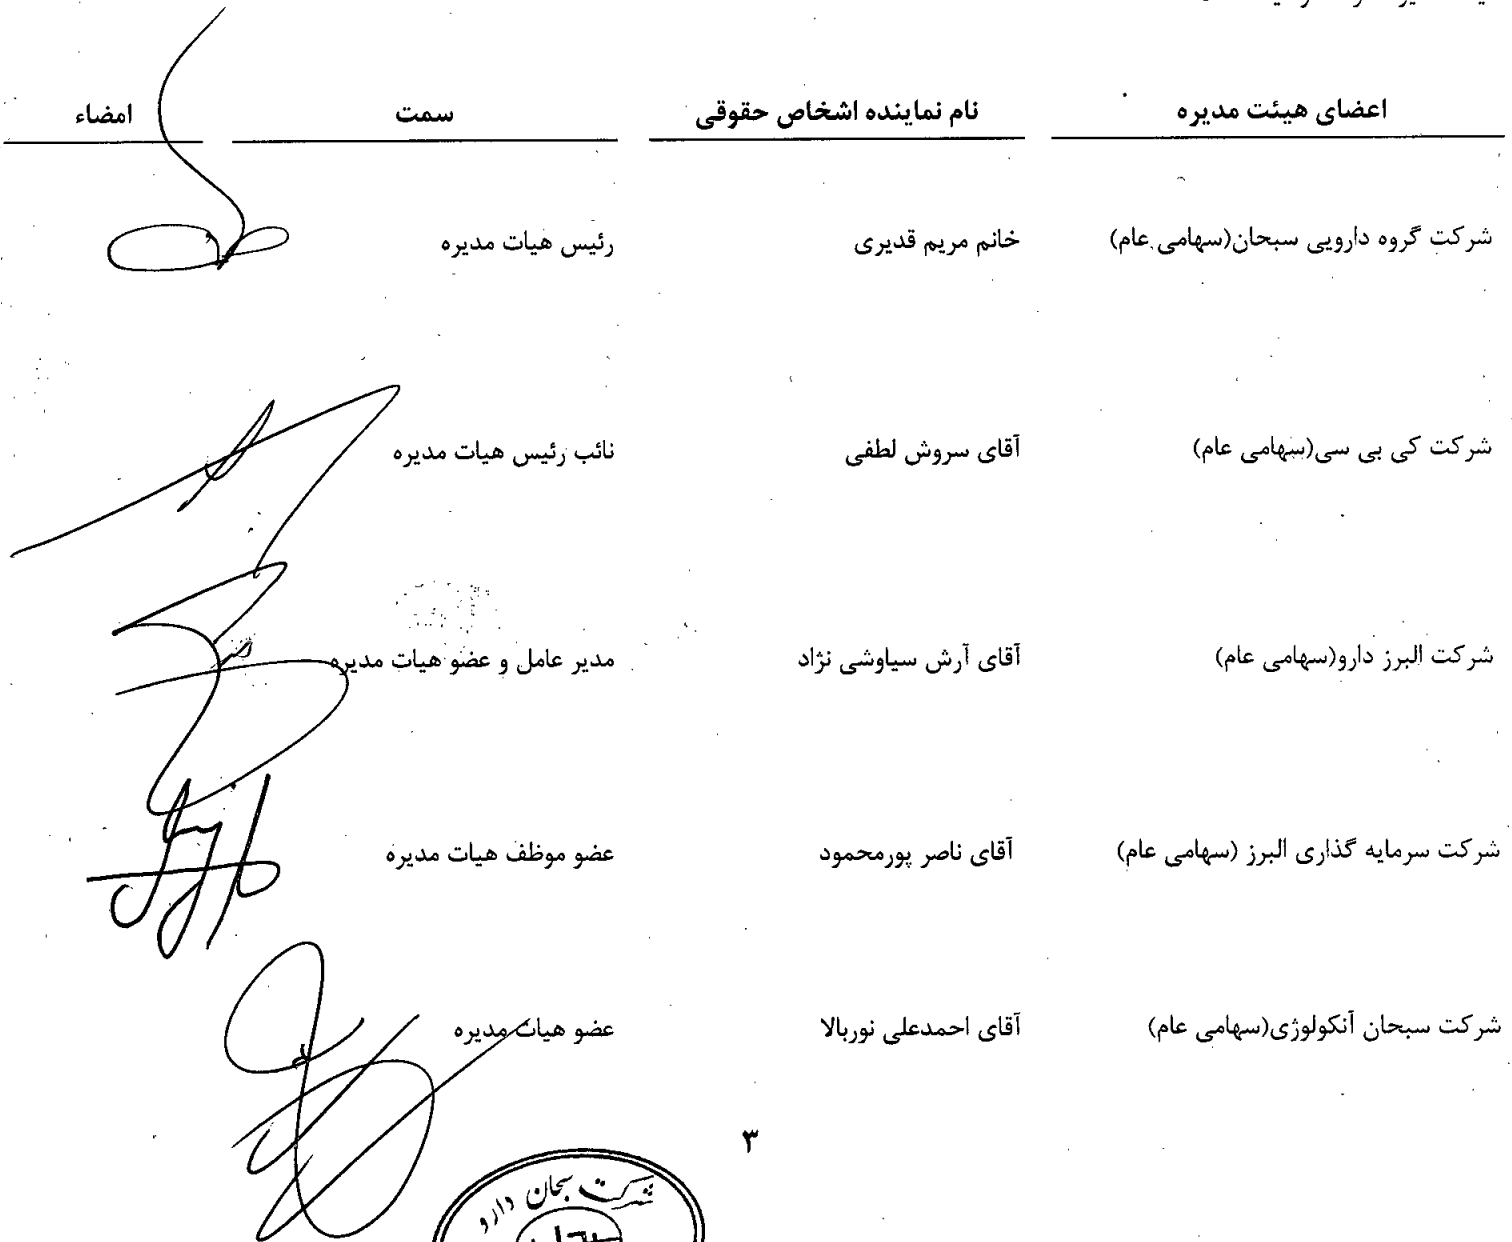 اعضای هیئت مدیره نام نماینده اشخاص حقوقی سمت امضاء
شرکت گروه دارویی سبحان(سهامی عام) خانم مریم قدیری رئیس هیات مدیره
شرکت کی بی سی(سهامی عام) آقای سروش لطفی نائب رئیس هیات مدیره
شرکت البرز دارو(سهامی عام) آقای آرش سیاوشی نژاد مدیر عامل و عضو هیات مدیره
شرکت سرمایه گذاری البرز (سهامی عام) آقای ناصر پورمحمود عضو موظف هیات مدیره
شرکت سبحان آنکولوژی(سهامی عام) آقای احمدعلی نوربالا عضو هیات مدیره
۳
شرکت سبحان دارو